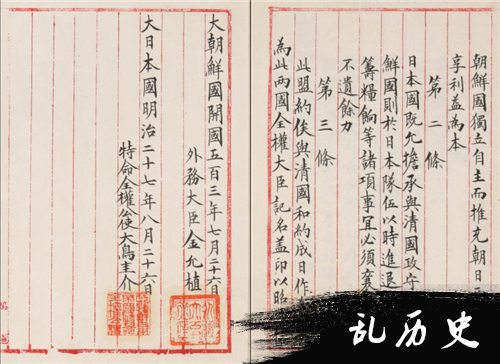 朝鮮國獨立自主而推充朝日兩
享利益為本
第二條
日本國既允擔承與清國政守
鮮國則於日本隊伍以時進退
籌糧餉等諸項事宜必須襄
不遺餘力
第三條
此盟約俟與清國和約成日作
為此兩國全權大臣記名盖印以昭
大朝鮮國開國五百三年七月二十六日
外務大臣金允植
大日本國明治二十七年八月二十六日
特命全權公使大鳥圭介
乱历史